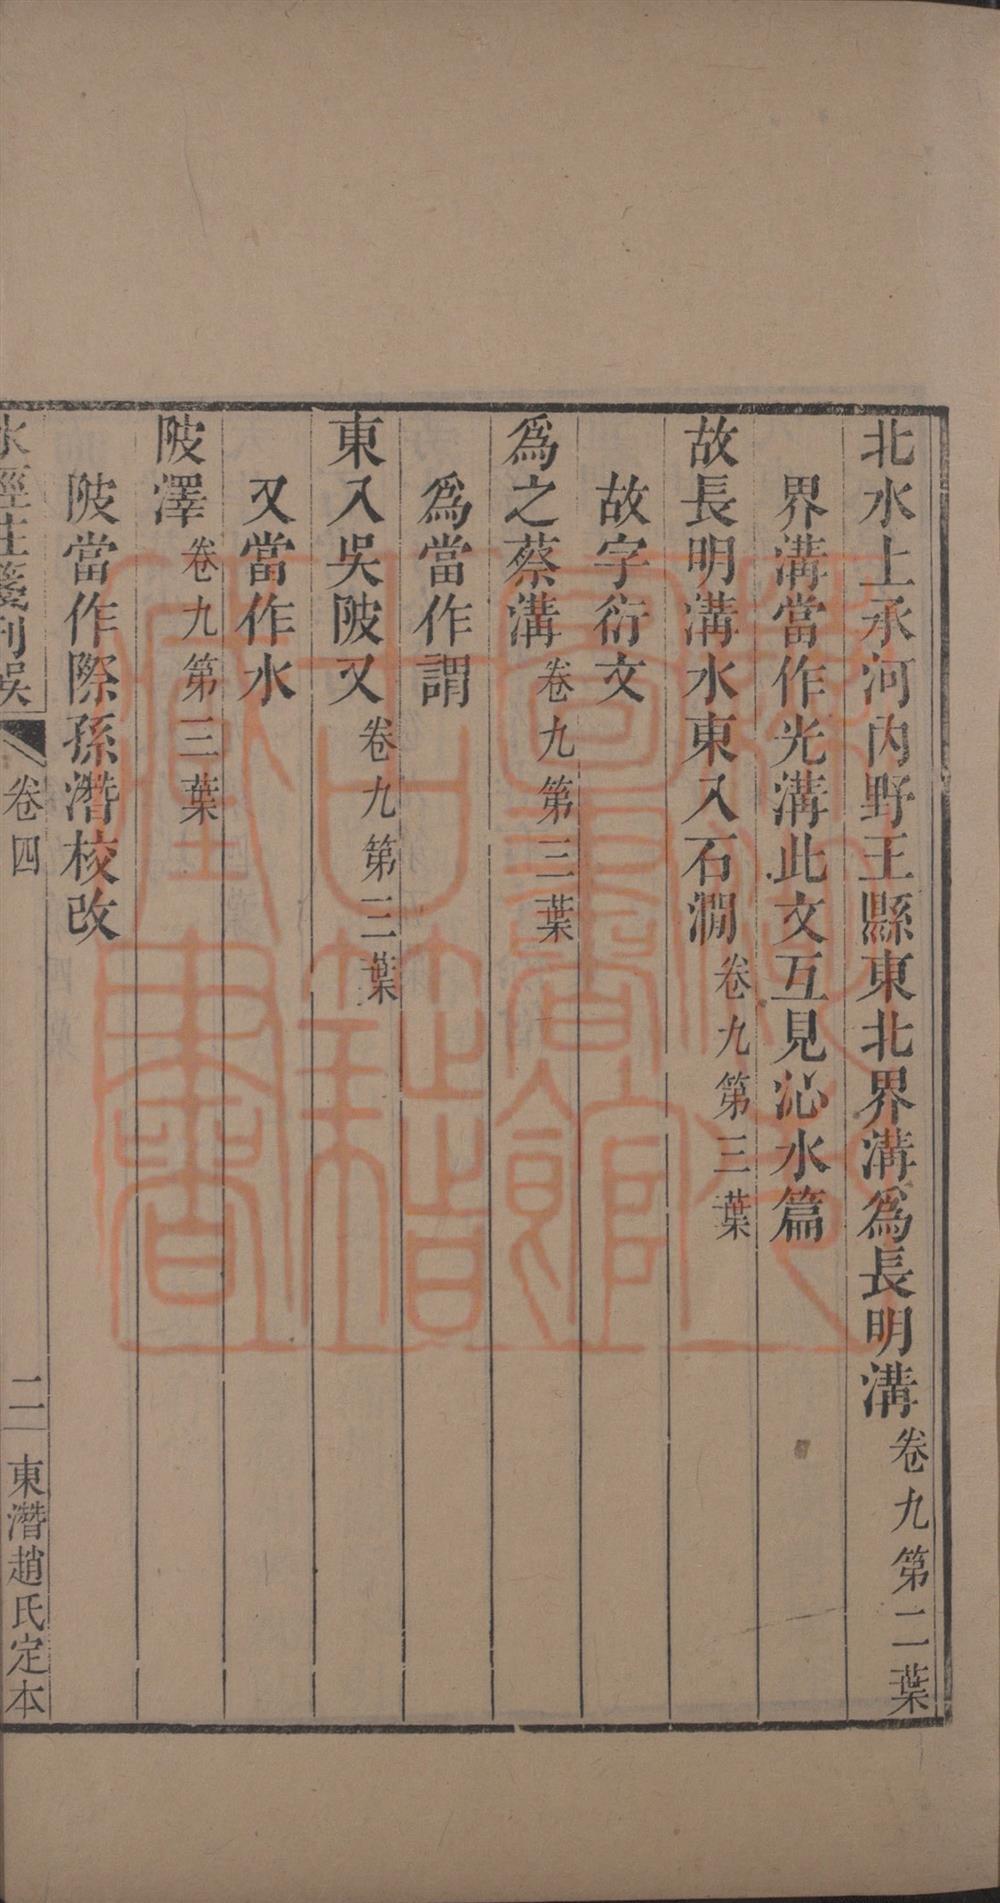 北水上承河內野王縣東北界溝爲長明溝卷九第二葉
界溝當作光溝此文互見沁水篇
故長明溝水東入石澗卷九第三葉
故字衍文
爲之蔡溝卷九第三葉
爲當作謂
東入吳陂又卷九第三葉
又當作水
陂澤卷九第三葉
陂當作際孫潛校改
水經注箋刊誤 卷四 二 東潛趙氏定本